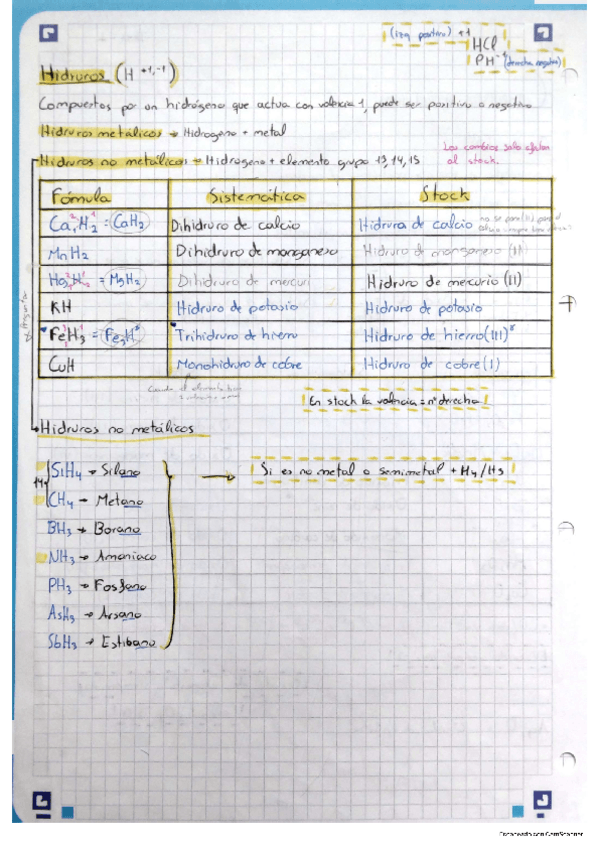 (izq positivo) +1
HCl
PH -1 (derecha negativo)
Hidruros (H +1,-1)
Compuestos por un hidrógeno que actua con valencia 1, puede ser positivo o negativo
Hidruros metálicos → Hidrogeno + metal
Hidruros no metálicos → Hidrogeno + elemento grupo 13, 14, 15
Los cambios solo afectan
al stock.
Fórmula Sistemática Stock
Ca₁H₂ = CaH₂ Dihidruro de calcio Hidruro de calcio
MnH2 Dihidruro de manganeso Hidruro de manganeso (II)
= MgH₂ Dihidruro de mercuri Hidruro de mercurio (II)
KH Hidruro de potasio Hidruro de potasio
FeH₃ = Trihidruro de hierro Hidruro de hierro (III)*
CuH Monohidruro de cobre Hidruro de cobre (I)
En stock la valencia = nº derecha
Hidruros no metálicos
14 SiH₄ → Silano
CH₄ → Metano
BH₃ → Borano
NH₃ → Amoniaco
PH₃ → Fosfano
AsH₃ → Arsano
SbH₃ → Estibano
Si es no metal o semimetal + H₄/H₃
Escaneado con CamScanner